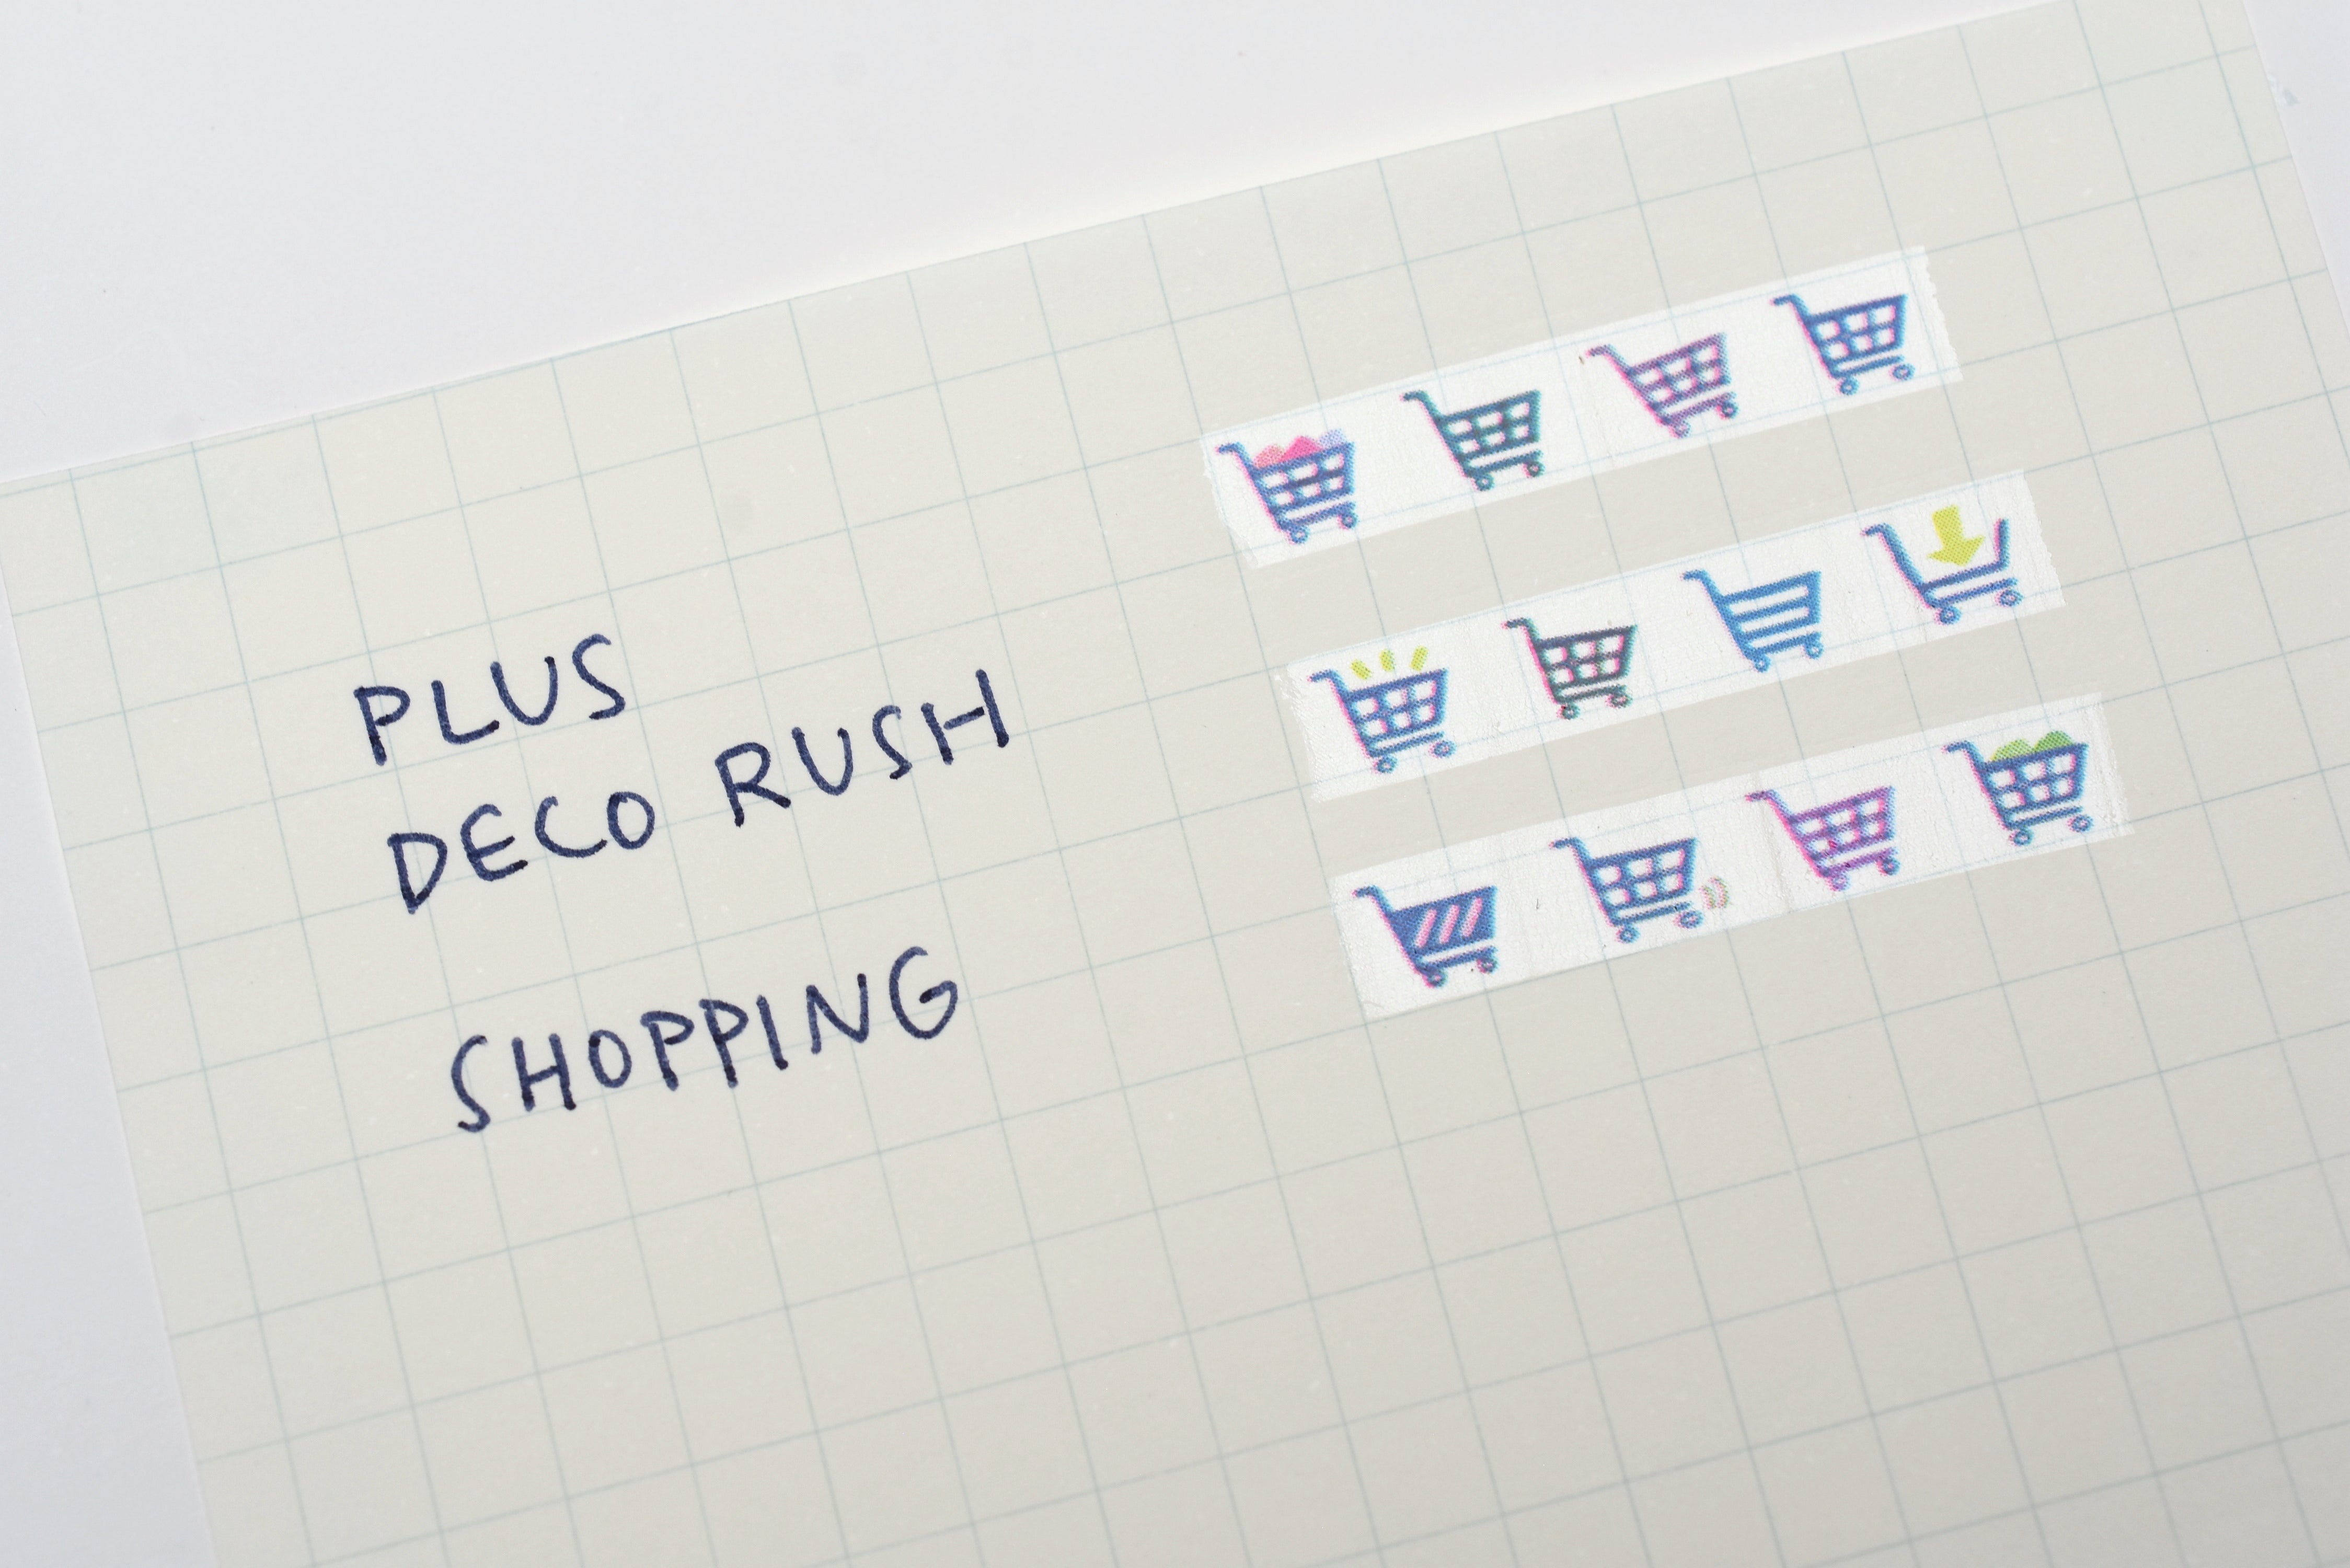 PLUS
DECO RUSH
SHOPPING